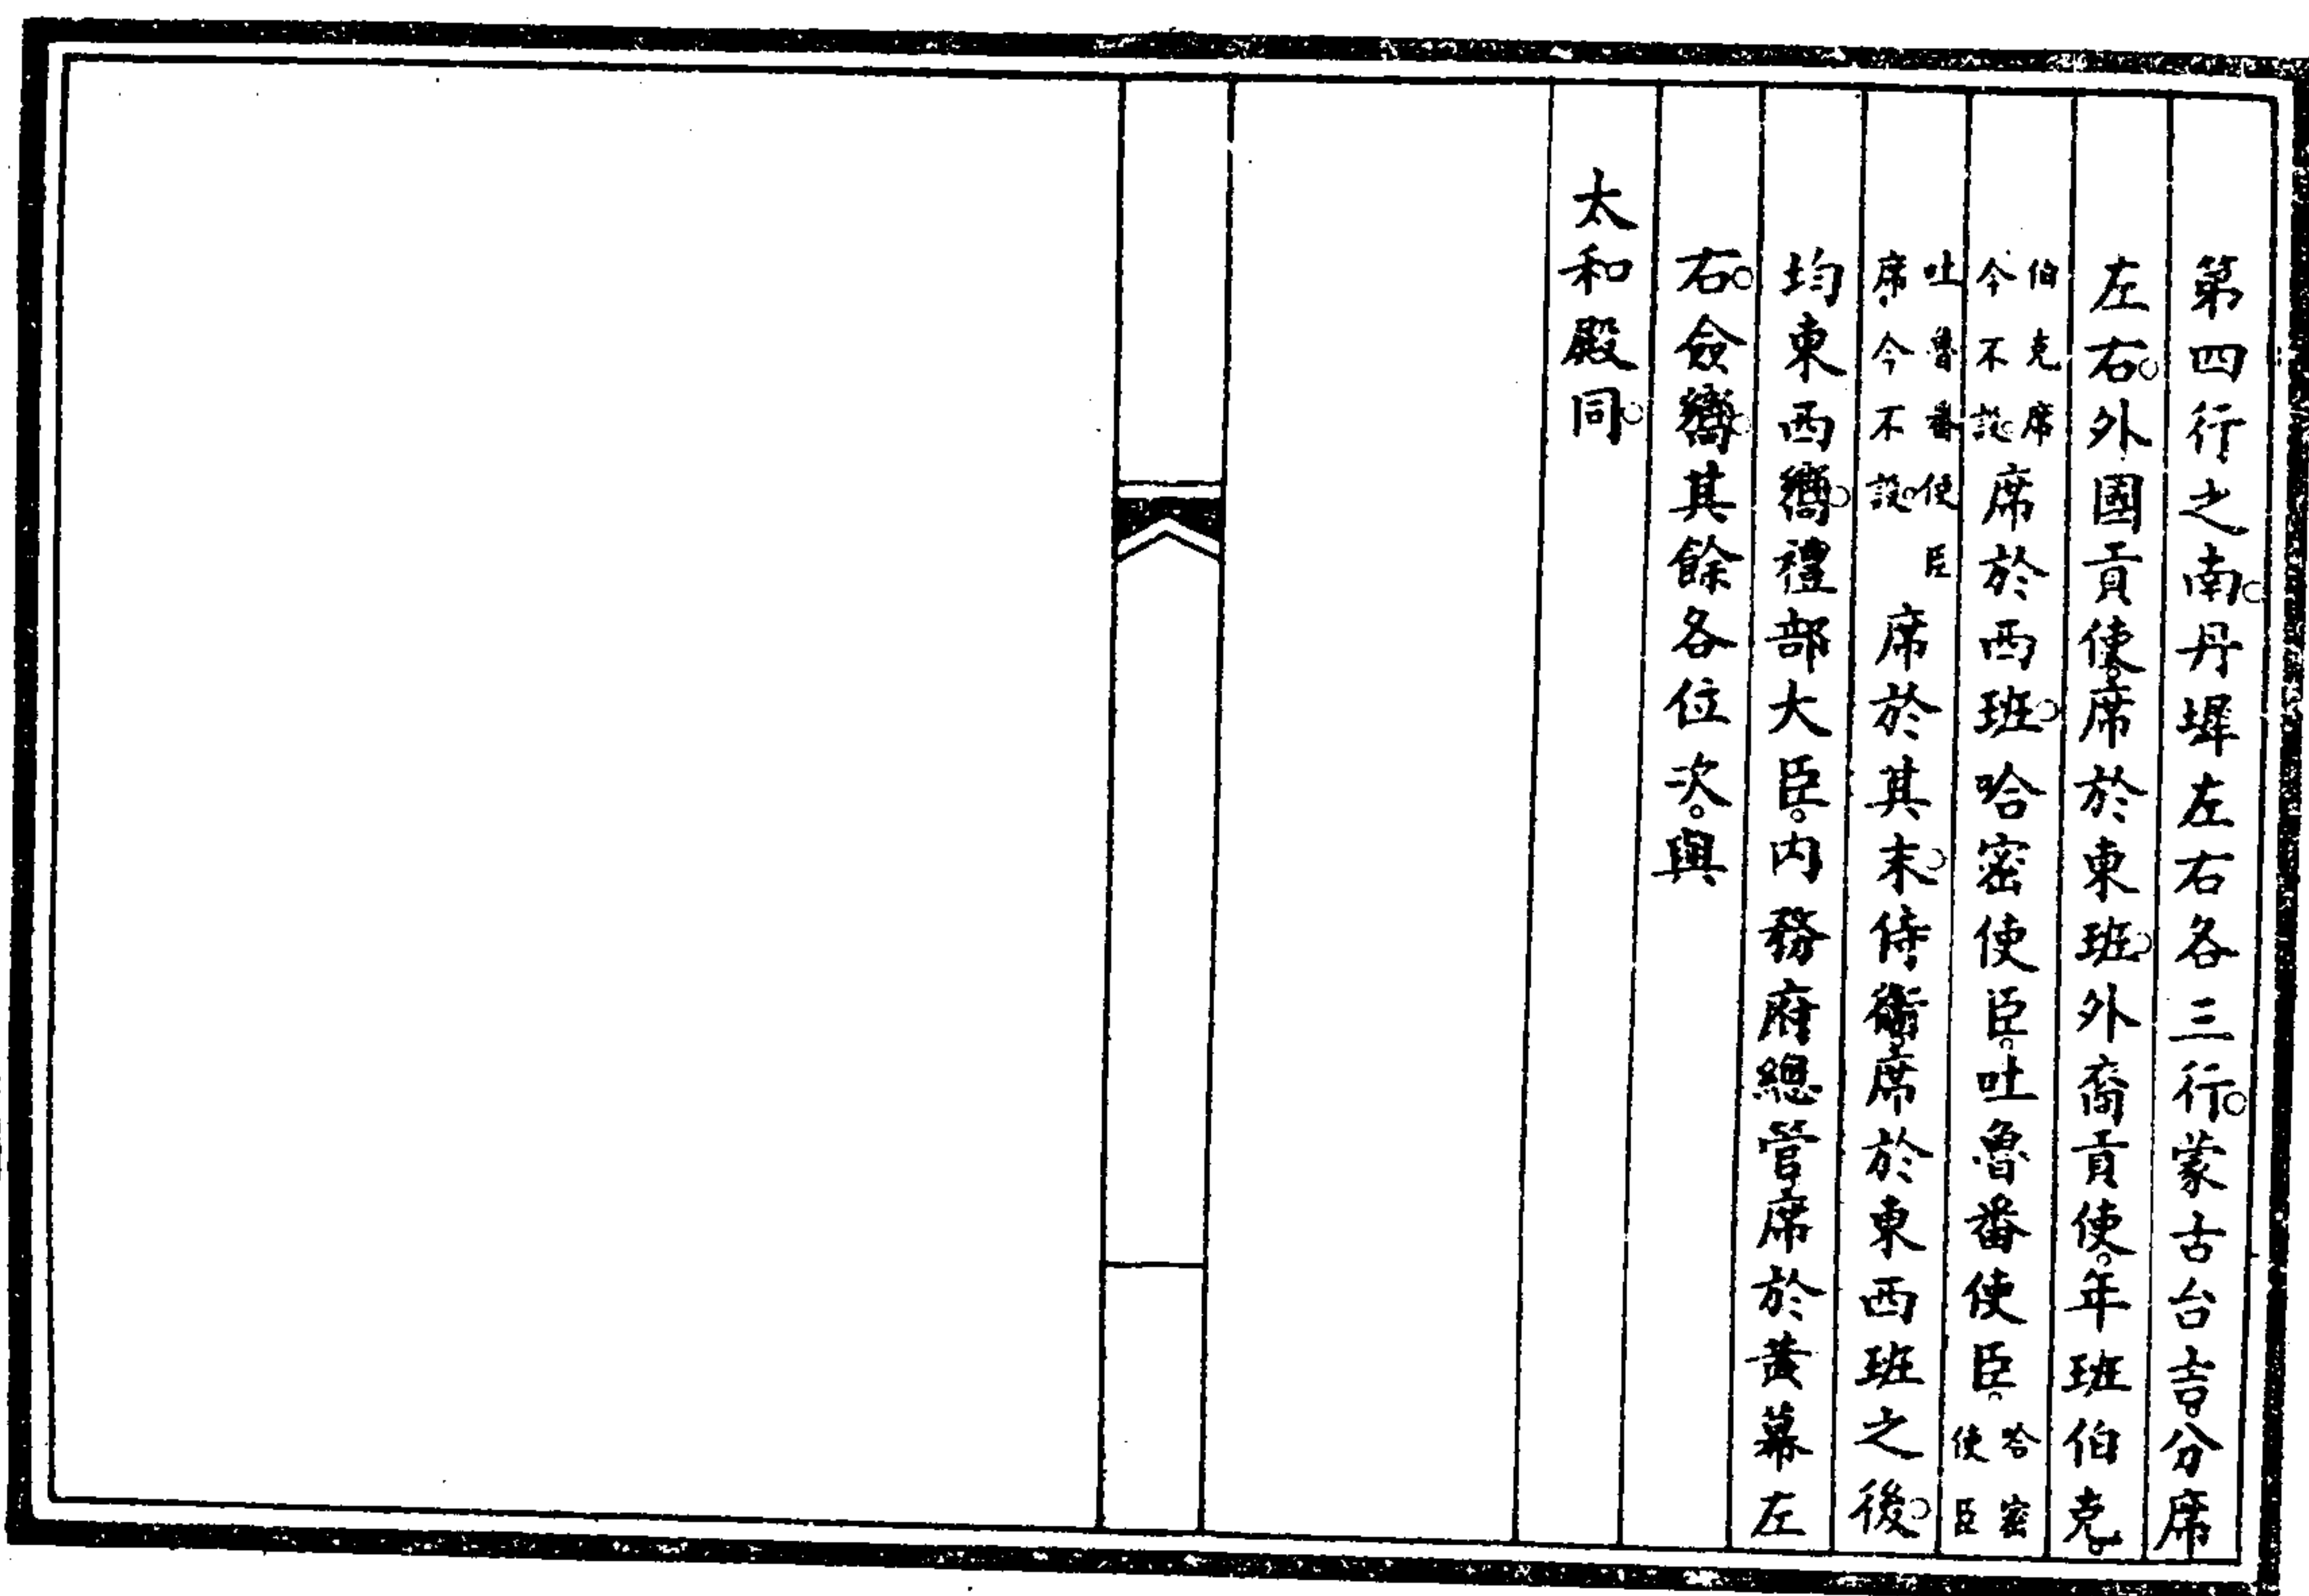 第四行之南。丹墀左右各三行。蒙古台吉。分席
左右。外國貢使。席於東班。外裔貢使。年班伯克。
伯克席今不設。席於西班。哈密使臣。吐魯番使臣。哈密使臣
吐魯番使臣席今不設。席於其末。侍衛。席於東西班之後。
均東西嚮。禮部大臣。內務府總管。席於黃幕左
右。僉嚮。其餘各位次。與
太和殿同。